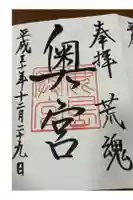 奉拝 荒魂
奥宮
平成三十年十二月二十九日